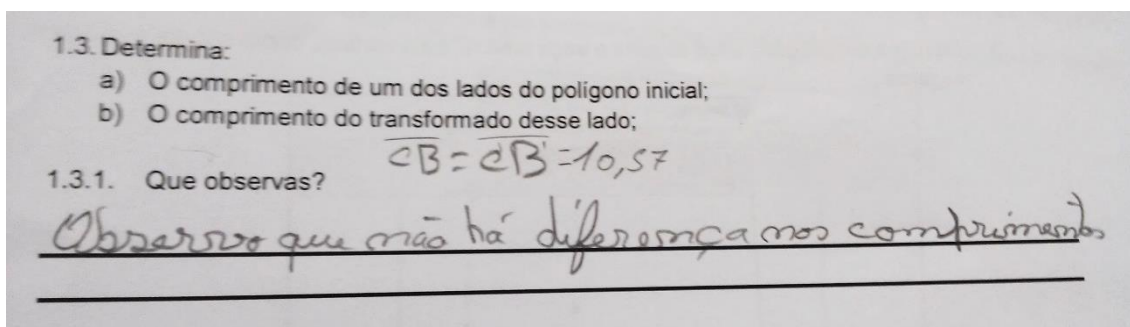 1.3. Determina:
a) O comprimento de um dos lados do polígono inicial;
b) O comprimento do transformado desse lado;
CB = C'B' = 10,57
1.3.1. Que observas?
Observo que não há diferença nos comprimentos